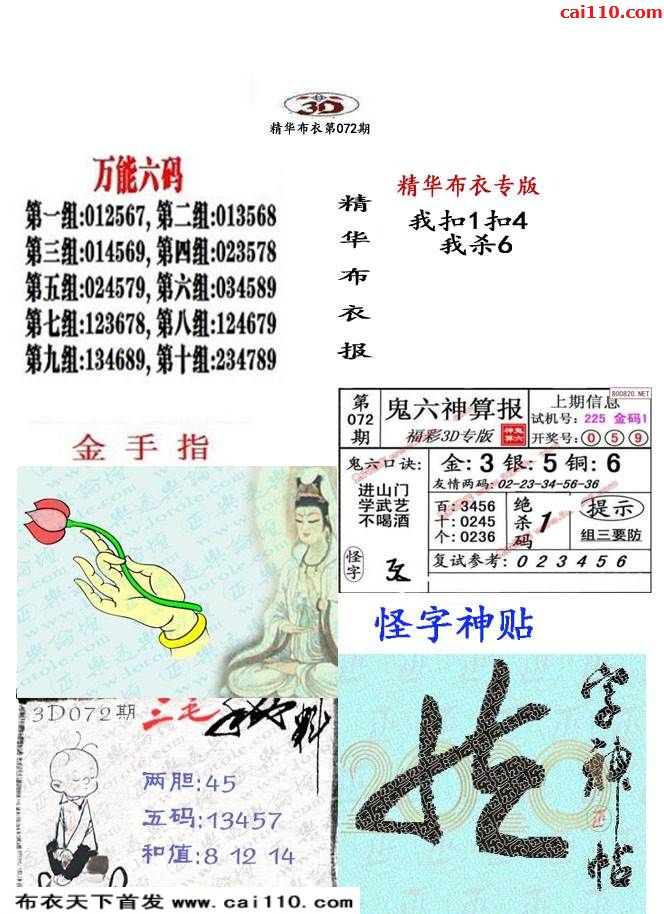 cai110.com
3D
精华布衣第072期
万能六码
第一组:012567, 第二组:013568
第三组:014569, 第四组:023578
第五组:024579, 第六组:034589
第七组:123678, 第八组:124679
第九组:134689, 第十组:234789
精华布衣报
精华布衣专版
我扣1扣4
我杀6
金手指
第072期
鬼六神算报
福彩3D专版
上期信息
800820.NET
试机号: 225 金码1
开奖号: 0 5 9
鬼六口诀:
进山门
学武艺
不喝酒
怪字
金: 3 银: 5 铜: 6
友情两码: 02-23-34-56-36
百: 3456
十: 0245
个: 0236
绝杀码
1
提示
组三要防
复试参考: 0 2 3 4 5 6
怪字神贴
3D072期
三毛
料
两胆:45
五码:13457
和值:8 12 14
字神帖
布衣天下首发 www.cai110.com